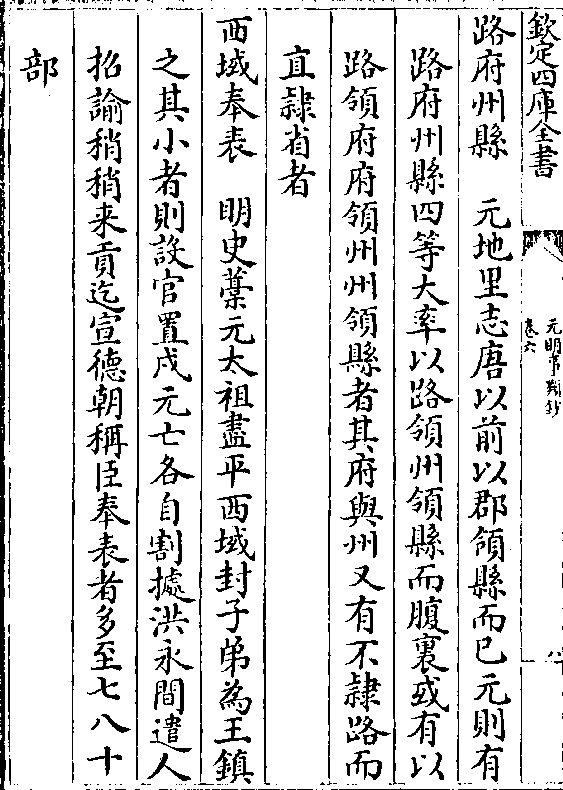 欽定四庫全書
元明事類鈔
卷六
路府州縣　元地里志唐以前以郡領縣而已元則有
路府州縣四等大率以路領州領縣而腹裏或有以
路領府府領州州領縣者其府與州又有不隸路而
直隸省者
西域奉表　明史藁元太祖盡平西域封子弟為王鎮
之其小者則設官置戍元亡各自割據洪永間遣人
招諭稍稍来貢迄宣德朝稱臣奉表者多至七八十
部